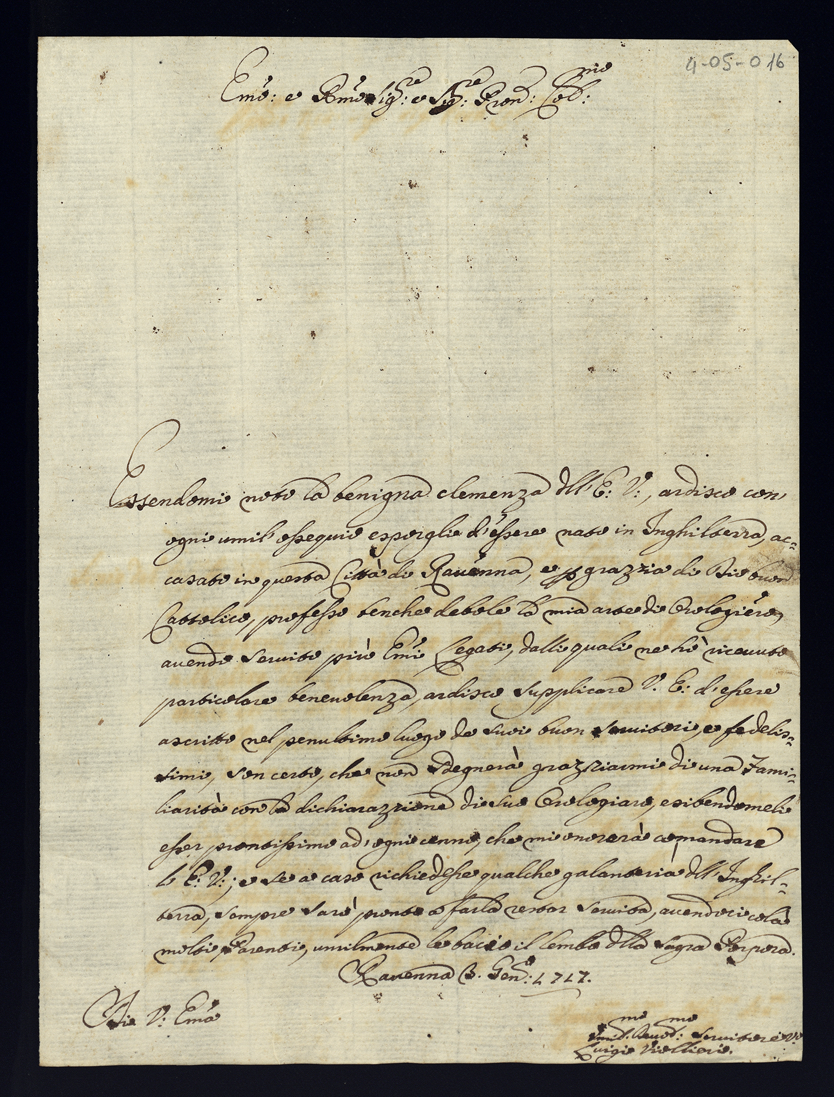 4-05-016
Emo: e Rmo Sigre: e Sigre: Pron: Colmo:
Essendomi nota la benigna clemenza dell'E: V:, ardisco con
ogni umil' ossequio esporglie d'essere nato in Inghilterra, ac-
casato in questa Città di Ravenna, e p grazzia di Dio buon
Cattolico, professo benche debole la mia arte di Orologiero,
avendo servito più Emi Legati, dalli quali ne hò ricevuto
particolare benevolenza, ardisco supplicare V. E: d'essere
ascritto nel penultimo luogo de suoi buon servitori, e fedelis-
simi, son certo, che non sdegnerà grazziarmi di una Fami-
liarità con la dichiarazzione di suo Orologiaro, esibendomeli
esser prontissimo ad' ogni cenno, che mi onorerà comandare
l' E: V:; e se a caso richiedesse qualche galanteria dell' Inghil-
terra, sempre sarò pronto a farla restar servita, avendoci colà
molti Parenti, umilmente le bacio il lembo della Sagra Porpora.
Ravenna 3. Geno: 1717.
Die V: Ema
Umilmo Devotmo: Servitore Vo
Luigi